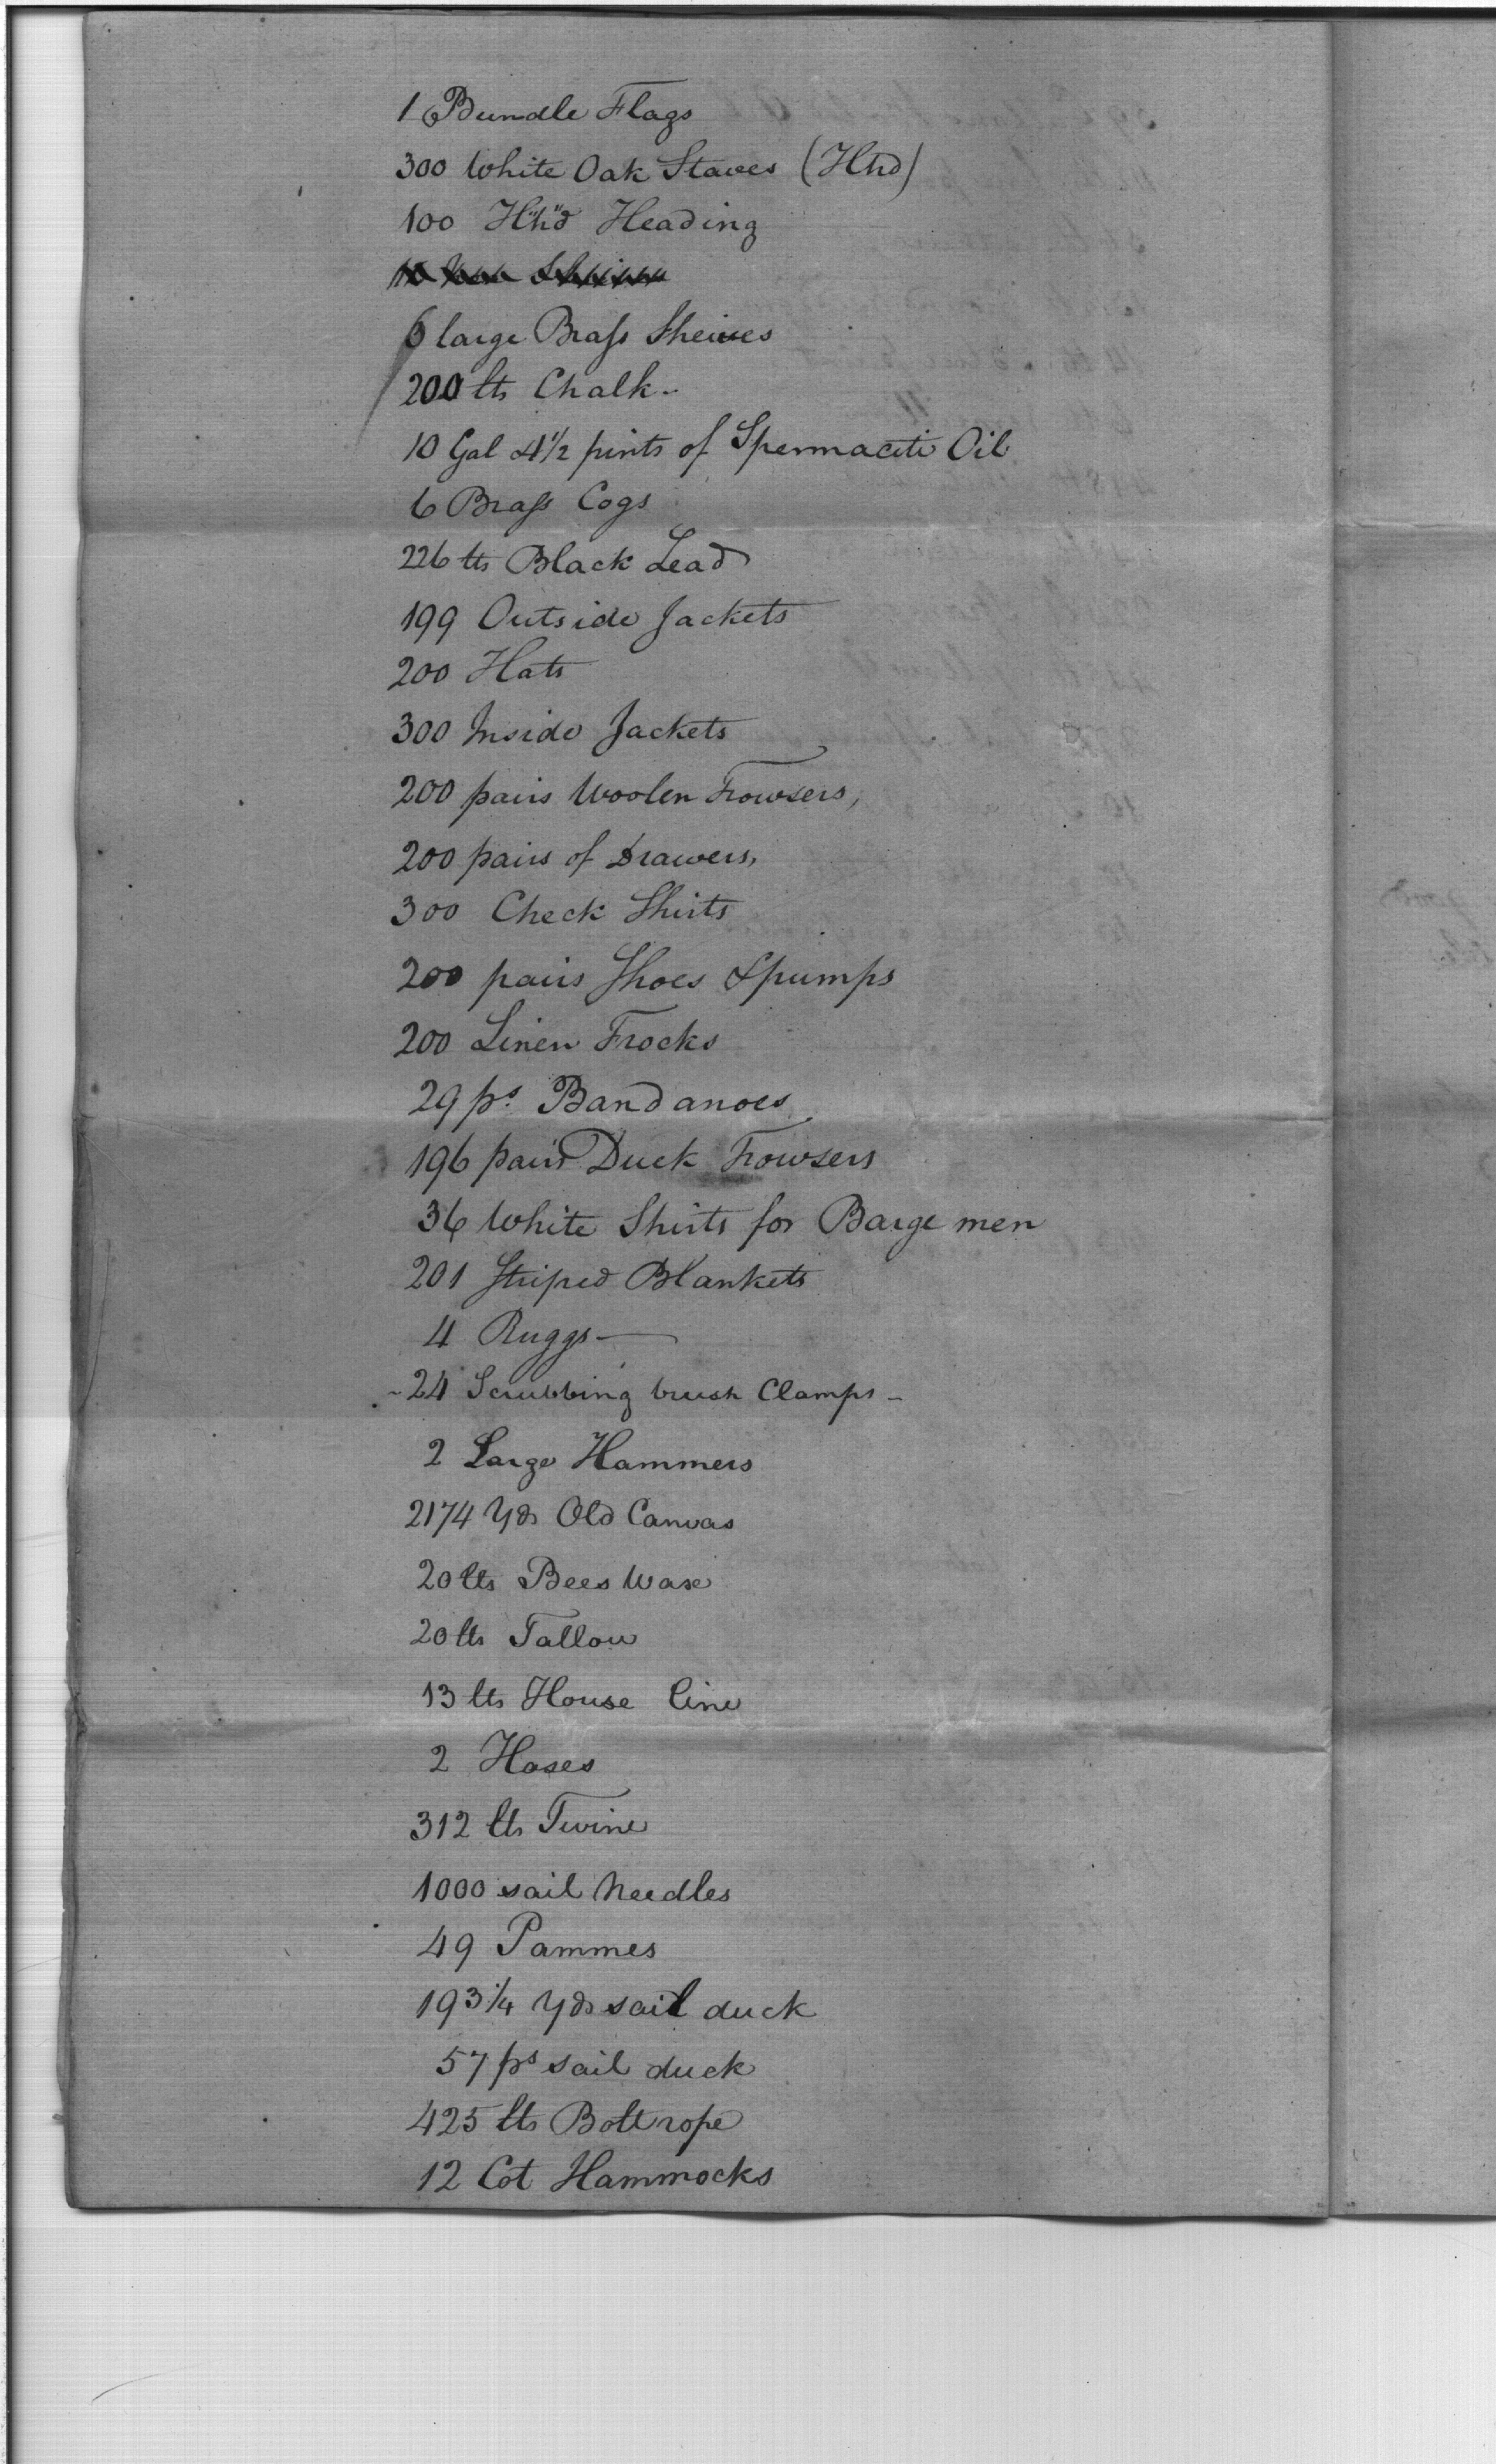 1 Bundle Flags
300 White Oak Staves (Hhd)
100 Hhd Heading
6 large Brass Sheives
200 lbs Chalk -
10 Gal 4 1/2 pints of Spermaceti Oil
6 Brass Cogs
226 lbs Black Lead
199 Outside Jackets
200 Hats
300 Inside Jackets
200 pairs Woolen Trowsers,
200 pairs of Drawers,
300 Check Shirts
200 pairs Shoes & pumps
200 Linen Frocks
29 ps. Bandanoes
196 pairs Duck Trowsers
36 White Shirts for Barge men
201 Striped Blankets
4 Ruggs —
- 24 Scrubbing brush Clamps -
2 Large Hammers
2174 Yds Old Canvas
20 lbs Bees Wax
20 lbs Tallow
13 lbs House line
2 Hoses
312 lbs Twine
1000 sail Needles
49 Pammes
193 1/4 Yds sail duck
57 ps sail duck
425 lbs Bolt rope
12 Cot Hammocks